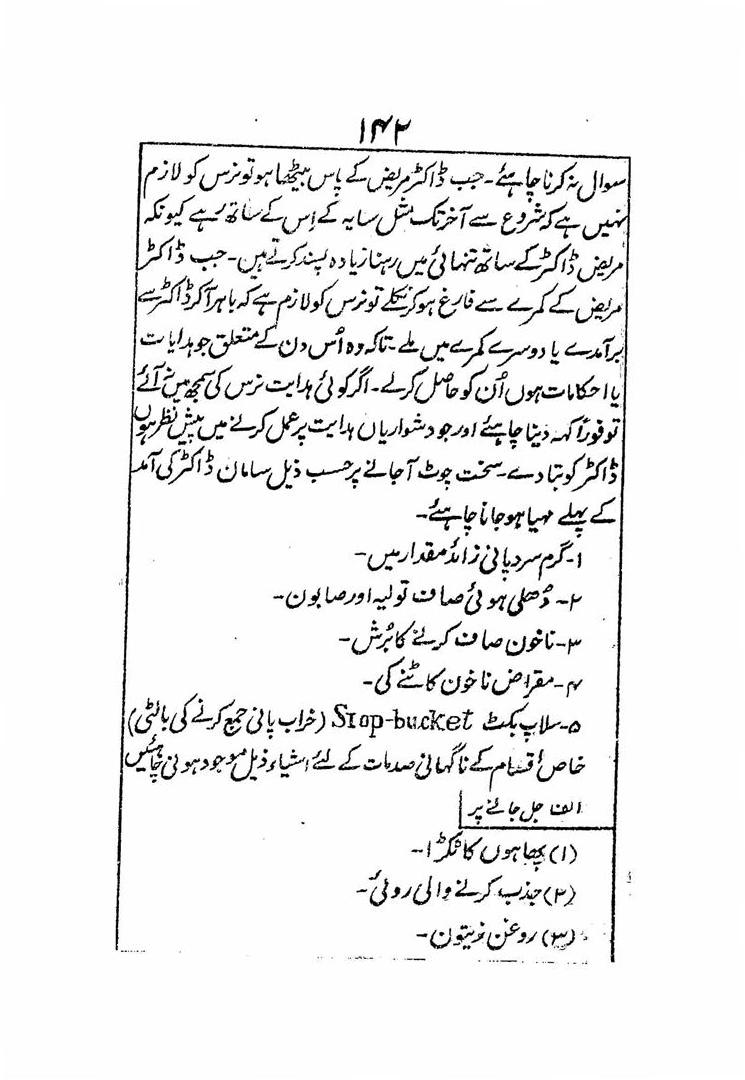 ۱۴۲
سوال نہ کرنا چاہئے۔ جب ڈاکٹر مریض کے پاس بیٹھا ہو تو نرس کو لازم
نہیں ہے کہ شروع سے آخر تک مثل سایہ کے اِس کے ساتھ رہے کیونکہ
مریض ڈاکٹر کے ساتھ تنہائی میں رہنا زیادہ پسند کرتے ہیں۔ جب ڈاکٹر
مریض کے کمرے سے فارغ ہو کر نکلے تو نرس کو لازم ہے کہ باہر آکر ڈاکٹر سے
برآمدے یا دوسرے کمرے میں ملے۔ تاکہ وہ اُس دن کے متعلق جو ہدایات
یا احکامات ہوں اُن کو حاصل کرلے۔ اگر کوئی ہدایت نرس کی سمجھ میں نہ آئے
تو فوراً کہہ دینا چاہئے اور جو دشواریاں ہدایت پر عمل کرنے میں پیش نظر ہوں
ڈاکٹر کو بتا دے۔ سخت چوٹ آجانے پر حسب ذیل سامان ڈاکٹر کی آمد
کے پہلے مہیا ہو جانا چاہئے۔
۱۔ گرم سرد پانی زائد مقدار میں۔
۲۔ دُھلی ہوئی صاف تولیہ اور صابون۔
۳۔ ناخون صاف کرنے کا برُش۔
۴۔ مقراض ناخون کاٹنے کی۔
۵۔ سلاپ بکٹ Slop-bucket (خراب پانی جمع کرنے کی بالٹی)
خاص اقسام کے ناگہانی صدمات کے لئے اشیاء ذیل موجود ہونی چاہئیں
الف جل جانے پر
(۱) پھاہوں کا ٹکڑا۔
(۲) جذب کرنے والی روئی۔
(۳) روغن زیتون۔